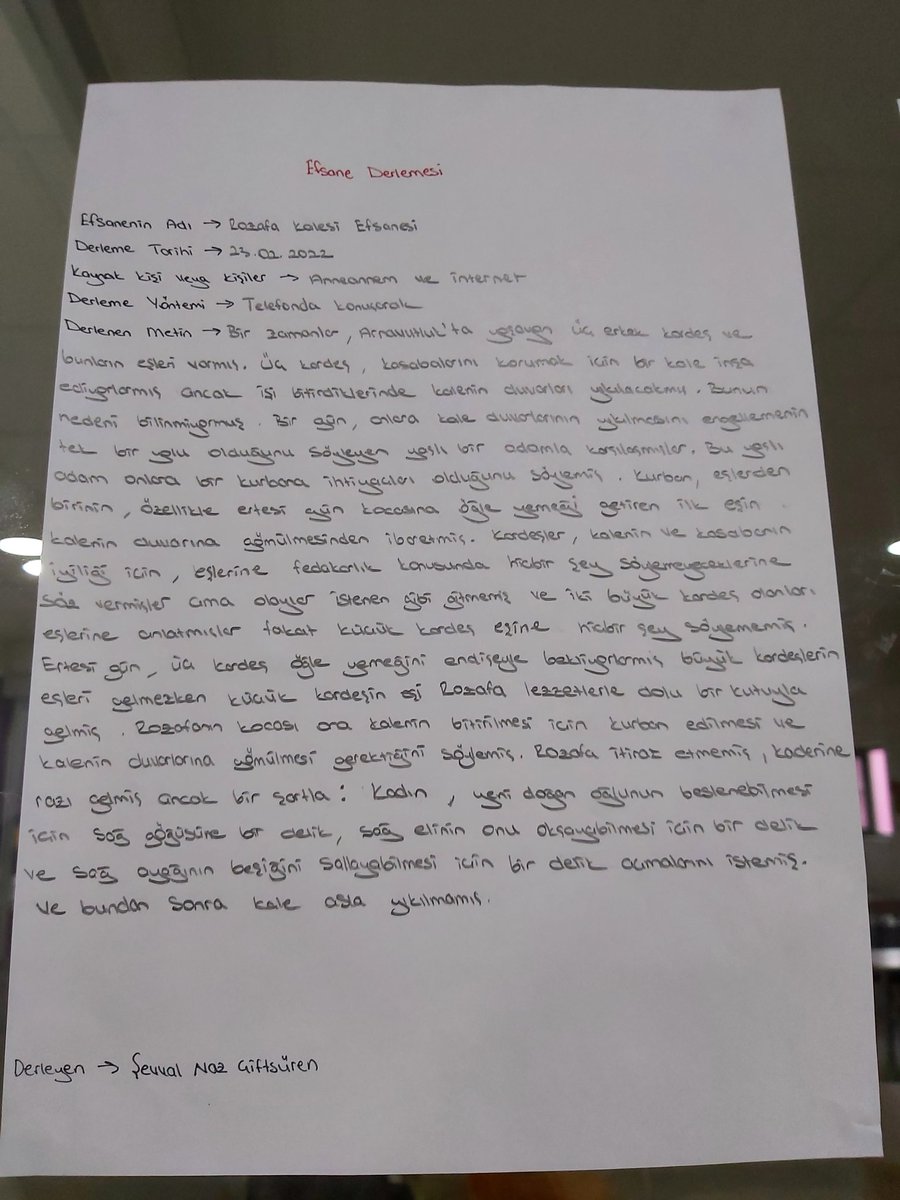 Efsane Derlemesi
Efsanenin Adı → Rozafa Kalesi Efsanesi
Derleme Tarihi → 23.02.2022
Kaynak kişi veya kişiler → Anneannem ve internet
Derleme Yöntemi → Telefonda konuşarak
Derlenen Metin → Bir zamanlar, Arnavutluk'ta yaşayan üç erkek kardeş ve
bunların eşleri varmış. Üç kardeş, kasabalarını korumak için bir kale inşa
ediyorlarmış ancak işi bitirdiklerinde kalenin duvarları yıkılacakmış. Bunun
nedeni bilinmiyormuş. Bir gün, onlara kale duvarlarının yıkılmasını engellemenin
tek bir yolu olduğunu söyleyen yaşlı bir adamla karşılaşmışlar. Bu yaşlı
adam onlara bir kurbana ihtiyaçları olduğunu söylemiş. Kurban, eşlerden
birinin, özellikle ertesi gün kocasına öğle yemeği getiren ilk eşin
kalenin duvarına gömülmesinden ibaretmiş. Kardeşler, kalenin ve kasabanın
iyiliği için, eşlerine fedakarlık konusunda hiçbir şey söylemeyeceklerine
söz vermişler ama olaylar istenen gibi gitmemiş ve iki büyük kardeş olanları
eşlerine anlatmışlar fakat küçük kardeş eşine hiçbir şey söylememiş.
Ertesi gün, üç kardeş öğle yemeğini endişeyle bekliyorlarmış büyük kardeşlerin
eşleri gelmezken küçük kardeşin eşi Rozafa lezzetlerle dolu bir kutuyla
gelmiş. Rozafanın kocası ona kalenin bitirilmesi için kurban edilmesi ve
kalenin duvarlarına gömülmesi gerektiğini söylemiş. Rozafa itiraz etmemiş, kaderine
razı gelmiş ancak bir şartla: Kadın, yeni doğan oğlunun beslenebilmesi
için sağ göğüsüne bir delik, sağ elinin onu okşayabilmesi için bir delik
ve sağ ayağının beşiğini sallayabilmesi için bir delik açmalarını istemiş.
Ve bundan sonra kale asla yıkılmamış.
Derleyen → Şevval Naz Çiftsüren